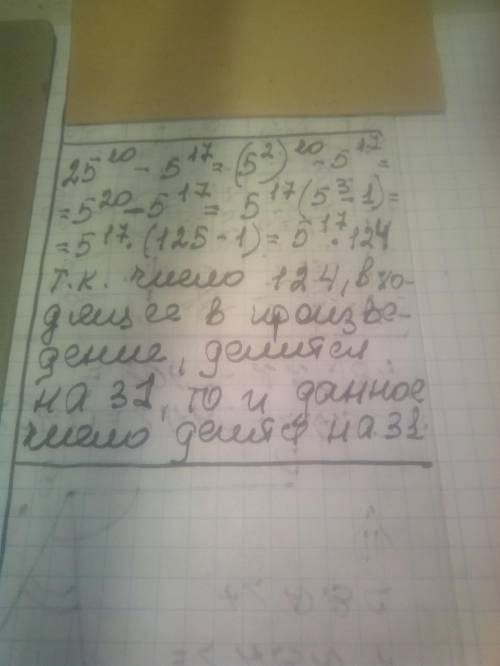 25²⁰ - 5¹⁷ = (5²)²⁰ - 5¹⁷ =
= 5²⁰ - 5¹⁷ = 5¹⁷ (5³ - 1) =
= 5¹⁷ · (125 - 1) = 5¹⁷ · 124
т.к. число 124, вхо-
дящее в произве-
дение, делится
на 31, то и данное
число делится на 31.